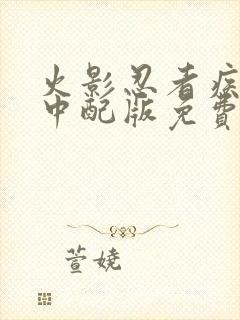 火影忍者疾
中配版免費
萱娆